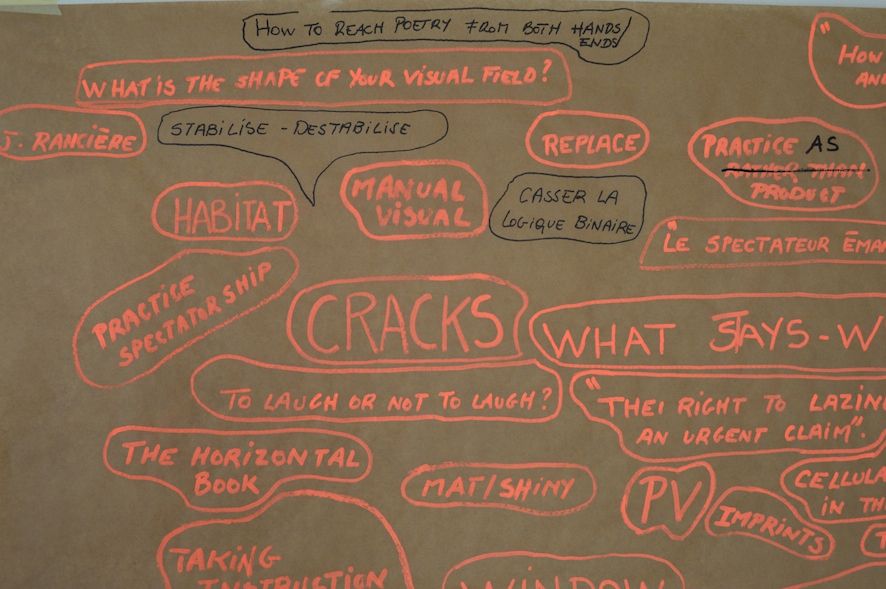 HOW TO REACH POETRY FROM BOTH HANDS/
ENDS/
"HOW
AN
WHAT IS THE SHAPE OF YOUR VISUAL FIELD?
J. RANCIÈRE
STABILISE - DESTABILISE
REPLACE
PRACTICE AS
RATHER THAN
PRODUCT
HABITAT
MANUAL
VISUAL
CASSER LA
LOGIQUE BINAIRE
"LE SPECTATEUR ÉMAN
PRACTICE
SPECTATOR SHIP
CRACKS
WHAT STAYS - W
TO LAUGH OR NOT TO LAUGH?
"THE RIGHT TO LAZIN
AN URGENT CLAIM".
THE HORIZONTAL
BOOK
MAT/SHINY
PV
IMPRINTS
CELLULA
IN TH
TAKING
INSTRUCTION
WINDOW